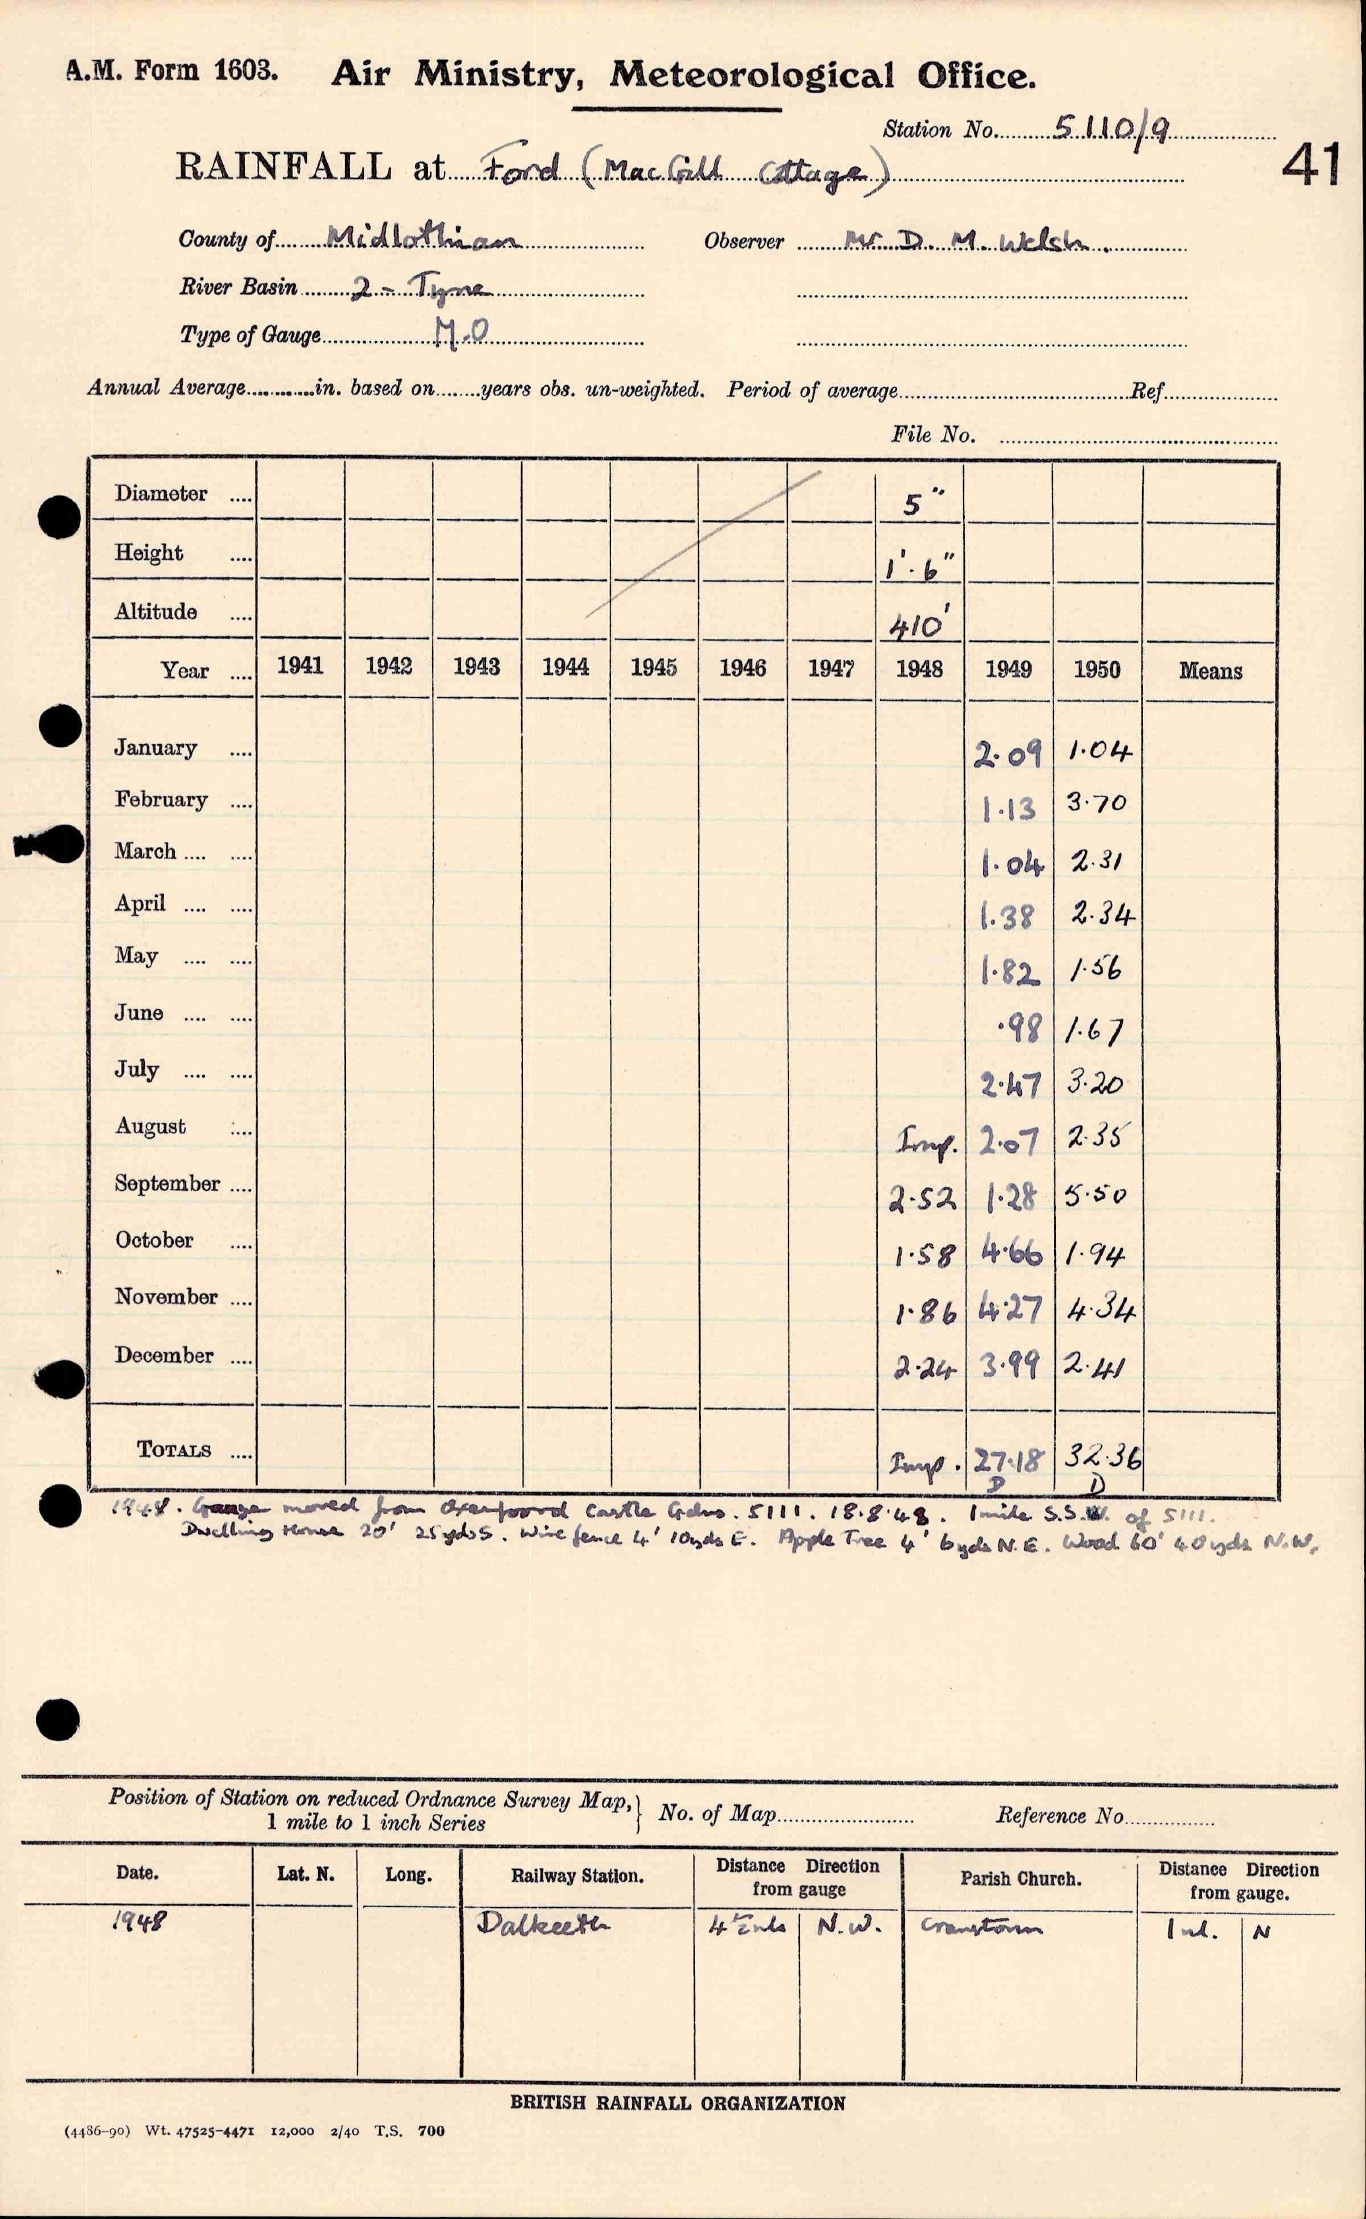 A.M. Form 1603. Air Ministry, Meteorological Office.
Station No. 5110/9
41
RAINFALL at Ford (MacGill Cottage)
County of Midlothian Observer Mr D. M. Welsh.
River Basin 2 - Tyne
Type of Gauge M.O
Annual Average............in. based on........years obs. un-weighted. Period of average............Ref............
File No. ............
Diameter .... 5"
Height .... 1'. 6"
Altitude .... 410'
Year .... 1941 1942 1943 1944 1945 1946 1947 1948 1949 1950 Means
January .... 2.09 1.04
February .... 1.13 3.70
March .... .... 1.04 2.31
April .... .... 1.38 2.34
May .... .... 1.82 1.56
June .... .... .98 1.67
July .... .... 2.47 3.20
August .... Imp. 2.07 2.35
September .... 2.52 1.28 5.50
October .... 1.58 4.66 1.94
November .... 1.86 4.27 4.34
December .... 2.24 3.99 2.41
TOTALS .... Imp. 27.18 32.36
D D
1948. Gauge moved from Oxenfoord Castle Gdns. 5111. 18.8.48. 1 mile S.S.W. of 5111.
Dwelling House 20' 25 yds S. Wire fence 4' 10 yds E. Apple Tree 4' 6 yds N.E. Wood 60' 40 yds N.W.
Position of Station on reduced Ordnance Survey Map,} No. of Map............ Reference No............
1 mile to 1 inch Series
Date. Lat. N. Long. Railway Station. Distance Direction Parish Church. Distance Direction
from gauge from gauge.
1948 Dalkeith 4½ mls N.W. Cranstoun 1 ml. N
BRITISH RAINFALL ORGANIZATION
(4486-90) Wt. 47525-4471 12,000 2/40 T.S. 700